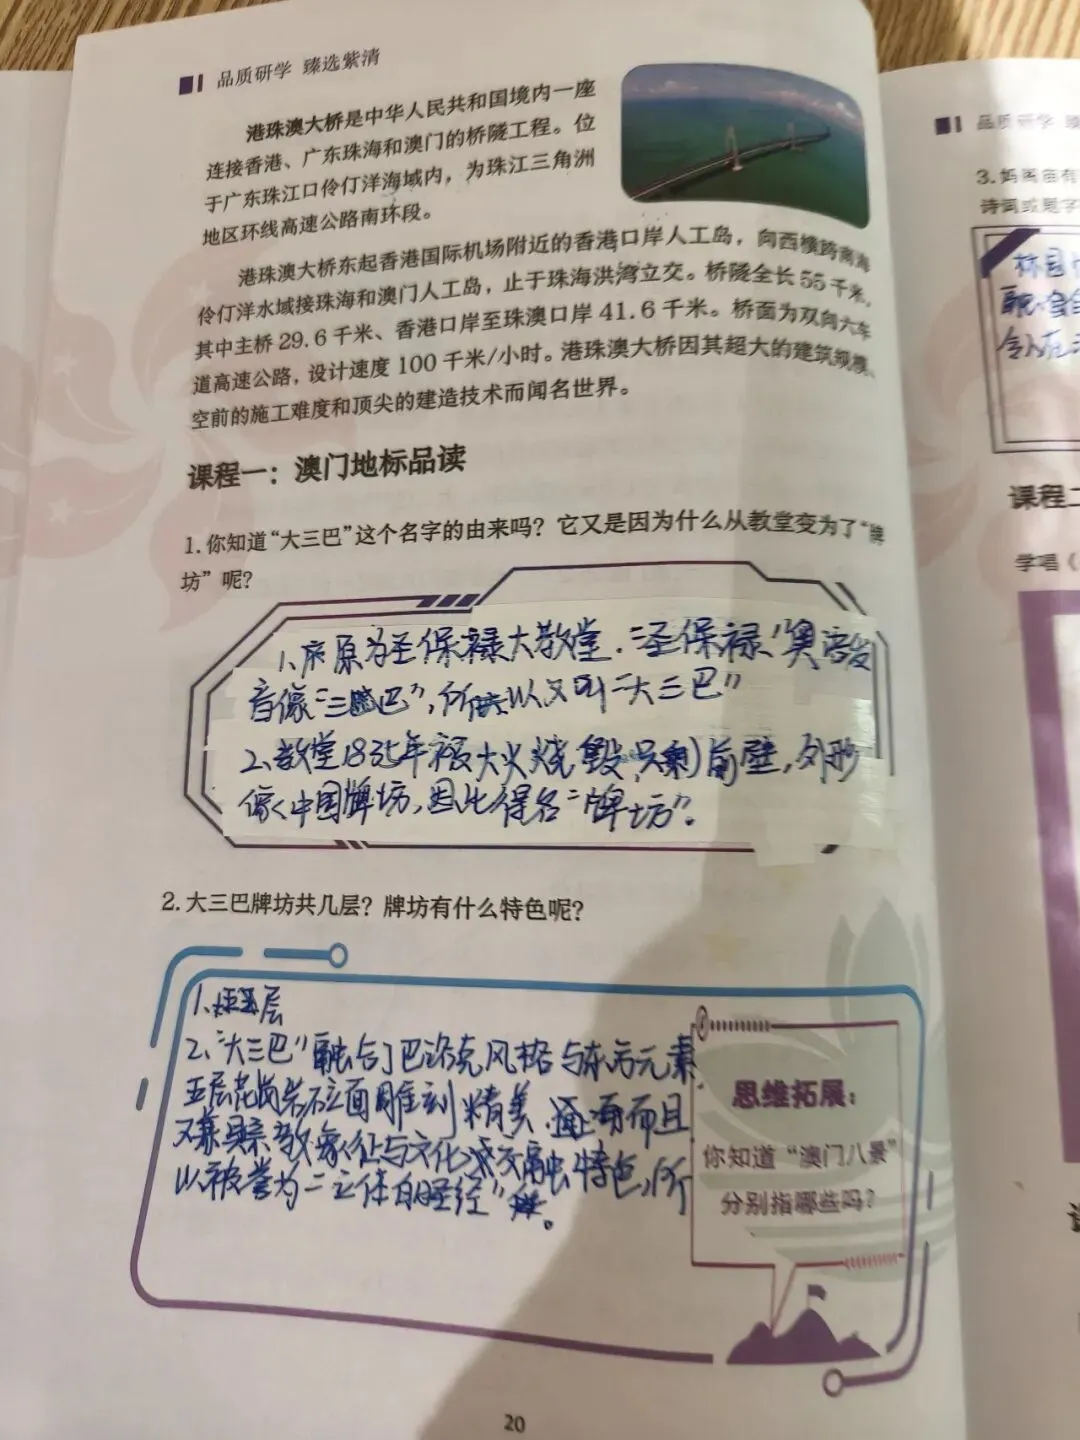 品质研学 臻选紫清
港珠澳大桥是中华人民共和国境内一座
连接香港、广东珠海和澳门的桥隧工程。位
于广东珠江口伶仃洋海域内，为珠江三角洲
地区环线高速公路南环段。
港珠澳大桥东起香港国际机场附近的香港口岸人工岛，向西横跨南海
伶仃洋水域接珠海和澳门人工岛，止于珠海洪湾立交。桥隧全长 55 千米，
其中主桥 29.6 千米、香港口岸至珠澳口岸 41.6 千米。桥面为双向六车
道高速公路，设计速度 100 千米/小时。港珠澳大桥因其超大的建筑规模、
空前的施工难度和顶尖的建造技术而闻名世界。
课程一：澳门地标品读
1. 你知道“大三巴”这个名字的由来吗？它又是因为什么从教堂变为了“牌
坊”呢？
1、原为圣保禄大教堂.“圣保禄”粤语发
音像“三巴”,所以又叫“大三巴”
2、教堂1835年被大火烧毁,只剩前壁,外形
像中国牌坊,因此得名“牌坊”.
2. 大三巴牌坊共几层？牌坊有什么特色呢？
1、五层
2、“大三巴”融合了巴洛克风格与东方元素
五层花岗岩石立面雕刻精美.而且
又兼具宗教象征与文化交融特色,所
以被誉为“立体的圣经”。
思维拓展：
你知道“澳门八景”
分别指哪些吗？
20
品质研学
3. 妈阁庙有
诗词或题字
课程二
学唱《